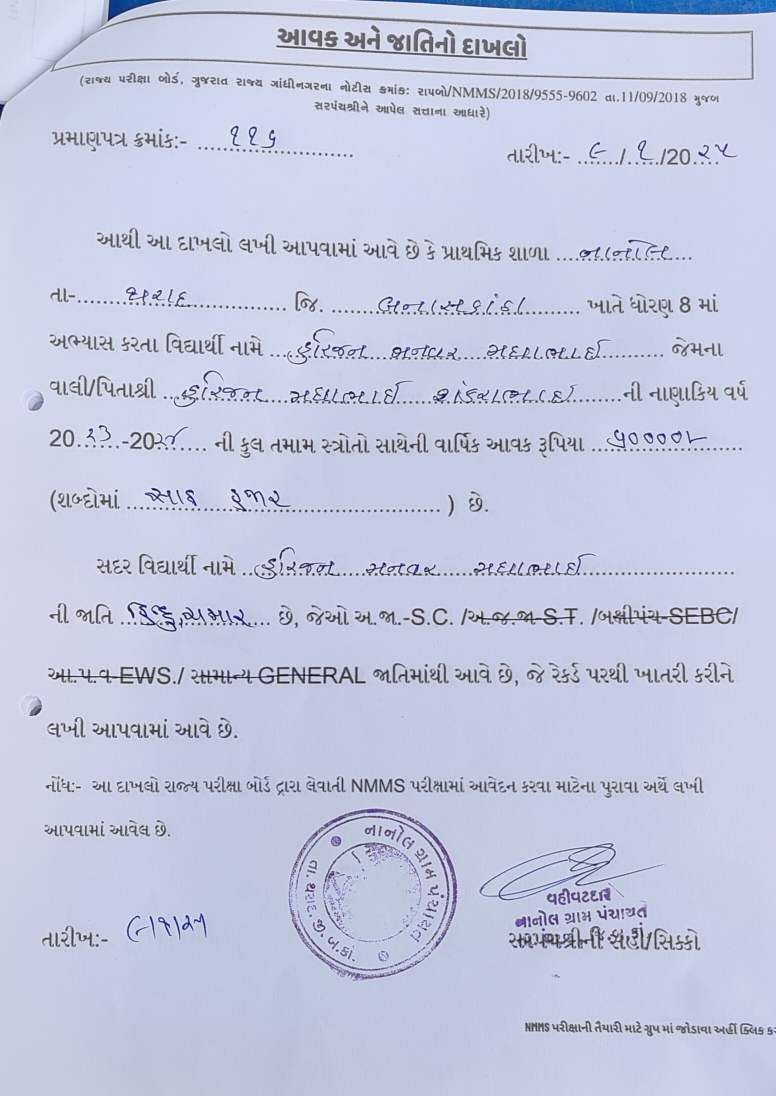 આવક અને જાતિનો દાખલો
(રાજ્ય પરીક્ષા બોર્ડ, ગુજરાત રાજ્ય ગાંધીનગરના નોટીસ ક્રમાંક: રાપબો/NMMS/2018/9555-9602 તા.11/09/2018 મુજબ
સરપંચશ્રીને આપેલ સત્તાના આધારે)
પ્રમાણપત્ર ક્રમાંક:- ૧૧૬
તારીખ:- ૯/૧/20૨૫
આથી આ દાખલો લખી આપવામાં આવે છે કે પ્રાથમિક શાળા નાનોલ
તા- થરાદ જિ. બનાસકાંઠા ખાતે ધોરણ 8 માં
અભ્યાસ કરતા વિદ્યાર્થી નામે હરિજન મનવર મઘાભાઈ જેમના
વાલી/પિતાશ્રી હરિજન મઘાભાઈ શંકરાભાઈ ની નાણાકિય વર્ષ
20૨૩-20૨૪ ની કુલ તમામ સ્ત્રોતો સાથેની વાર્ષિક આવક રૂપિયા
(શબ્દોમાં સાઠ હજાર ) છે.
સદર વિદ્યાર્થી નામે હરિજન મનવર મઘાભાઈ
ની જાતિ હિન્દુ ચમાર છે, જેઓ અ.જા.-S.C. /અ.જ.જા-S.T. /બક્ષીપંચ-SEBC/
આ.પ.વ-EWS./ સામાન્ય-GENERAL જાતિમાંથી આવે છે, જે રેકર્ડ પરથી ખાતરી કરીને
લખી આપવામાં આવે છે.
નોંધ:- આ દાખલો રાજ્ય પરીક્ષા બોર્ડ દ્વારા લેવાતી NMMS પરીક્ષામાં આવેદન કરવા માટેના પુરાવા અર્થે લખી
આપવામાં આવેલ છે.
નાનોલ ગ્રામ પંચાયત
તા. થરાદ જી. બ.કાં.
વહીવટદાર
નાનોલ ગ્રામ પંચાયત
તારીખ:- ૯/૧/૨૫
સરપંચશ્રીની સહી/સિક્કો
NMMS પરીક્ષાની તૈયારી માટે ગ્રુપ માં જોડાવા અહીં ક્લિક કર